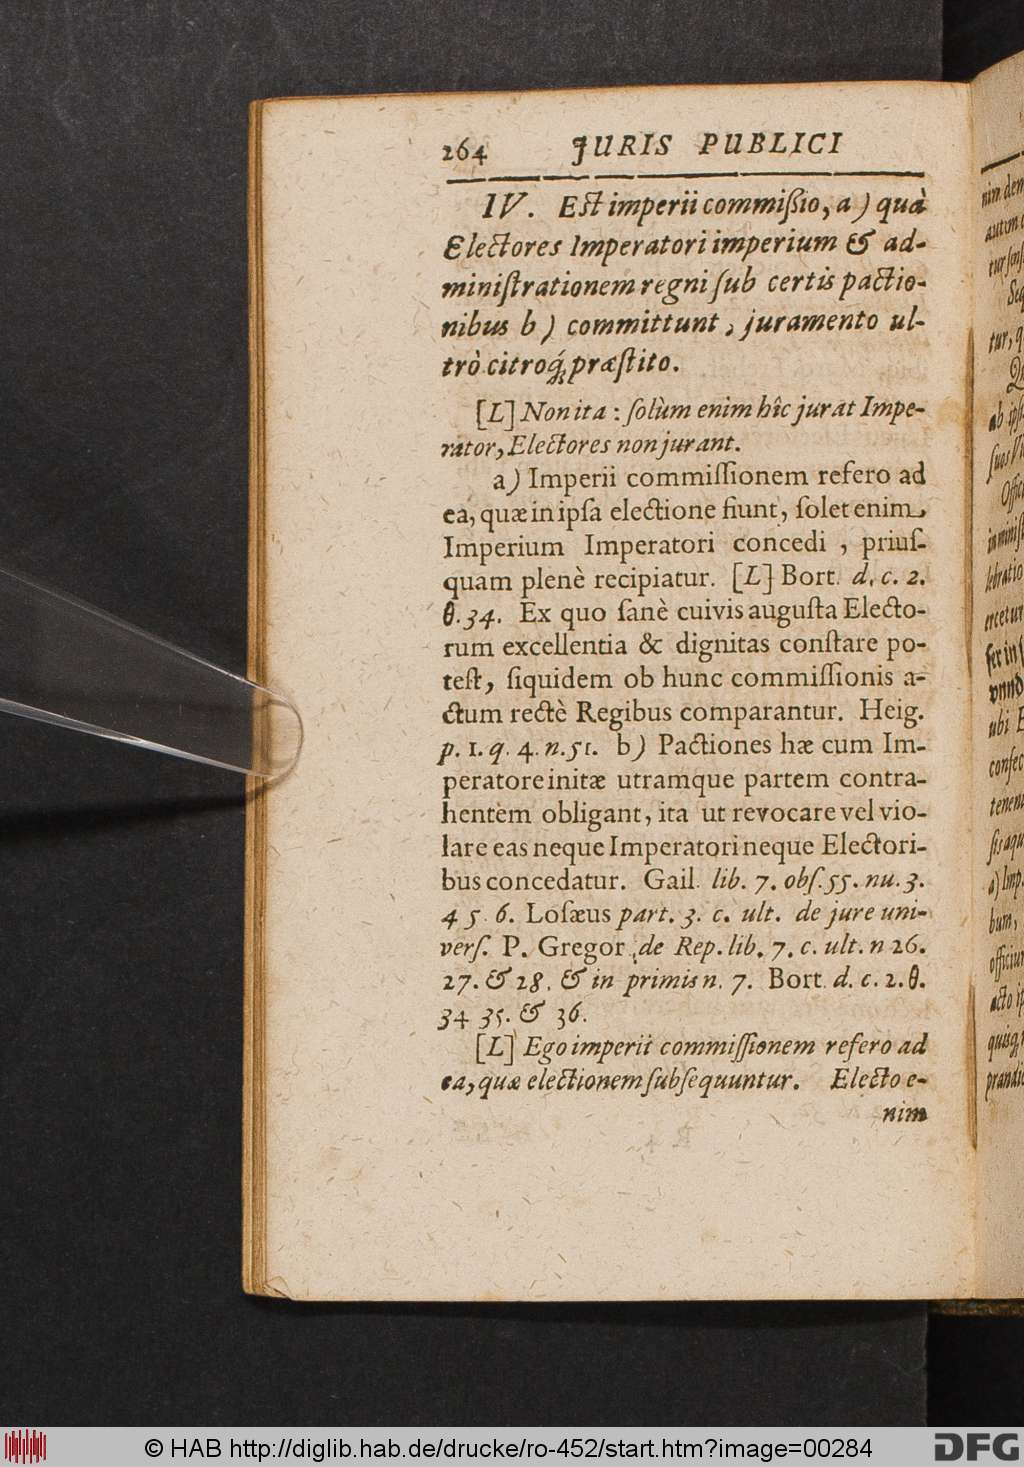 264 JURIS PUBLICI
IV. Est imperii commißio, a) quà
Electores Imperatori imperium & ad-
miniſtrationem regni ſub certis pactio-
nibus b) committunt, juramento ul-
trò citroq́; præſtito.
[L] Non ita: ſolùm enim hîc jurat Impe-
rator, Electores non jurant.
a) Imperii commiſſionem refero ad
ea, quæ in ipſa electione fiunt, ſolet enim
Imperium Imperatori concedi, priuſ-
quam plenè recipiatur. [L] Bort. d. c. 2.
θ. 34. Ex quo ſanè cuivis auguſta Electo-
rum excellentia & dignitas conſtare po-
teſt, ſiquidem ob hunc commiſſionis a-
ctum rectè Regibus comparantur. Heig.
p. 1. q. 4. n. 51. b) Pactiones hæ cum Im-
peratore initæ utramque partem contra-
hentem obligant, ita ut revocare vel vio-
lare eas neque Imperatori neque Electori-
bus concedatur. Gail. lib. 7. obſ. 55. nu. 3.
4 5. 6. Loſæus part. 3. c. ult. de jure uni-
verſ. P. Gregor. de Rep. lib. 7. c. ult. n 26.
27. & 28. & in primis n. 7. Bort. d. c. 2. θ.
34 35. & 36.
[L] Ego imperii commiſſionem refero ad
ea, quæ electionem ſubſequuntur. Electo e-
nim
nim dem
autem
Seq
tur, q
ab ipſ
ſuos
Offici
in miniſt
lebratio
ercetur
ſer in
vnnd
ubi E
confec
tenem
ſis aqu
a) Imp.
bum,
officiu
acto ip
quisq;
prandi
© HAB http://diglib.hab.de/drucke/ro-452/start.htm?image=00284
DFG